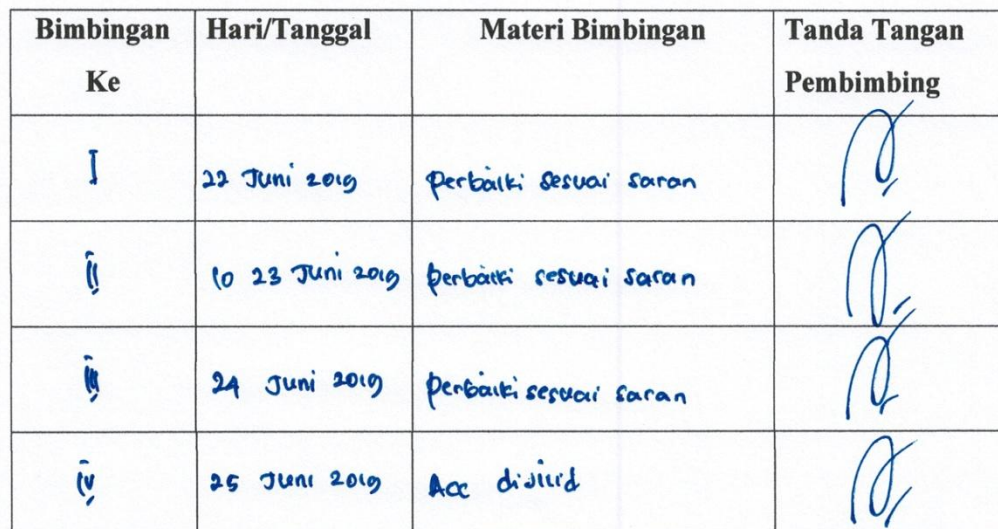 Bimbingan Ke Hari/Tanggal Materi Bimbingan Tanda Tangan Pembimbing
I 22 Juni 2019 Perbaiki sesuai saran
II 10 23 Juni 2019 Perbaiki sesuai saran
III 24 Juni 2019 Perbaiki sesuai saran
IV 25 Juni 2019 Acc dijilid